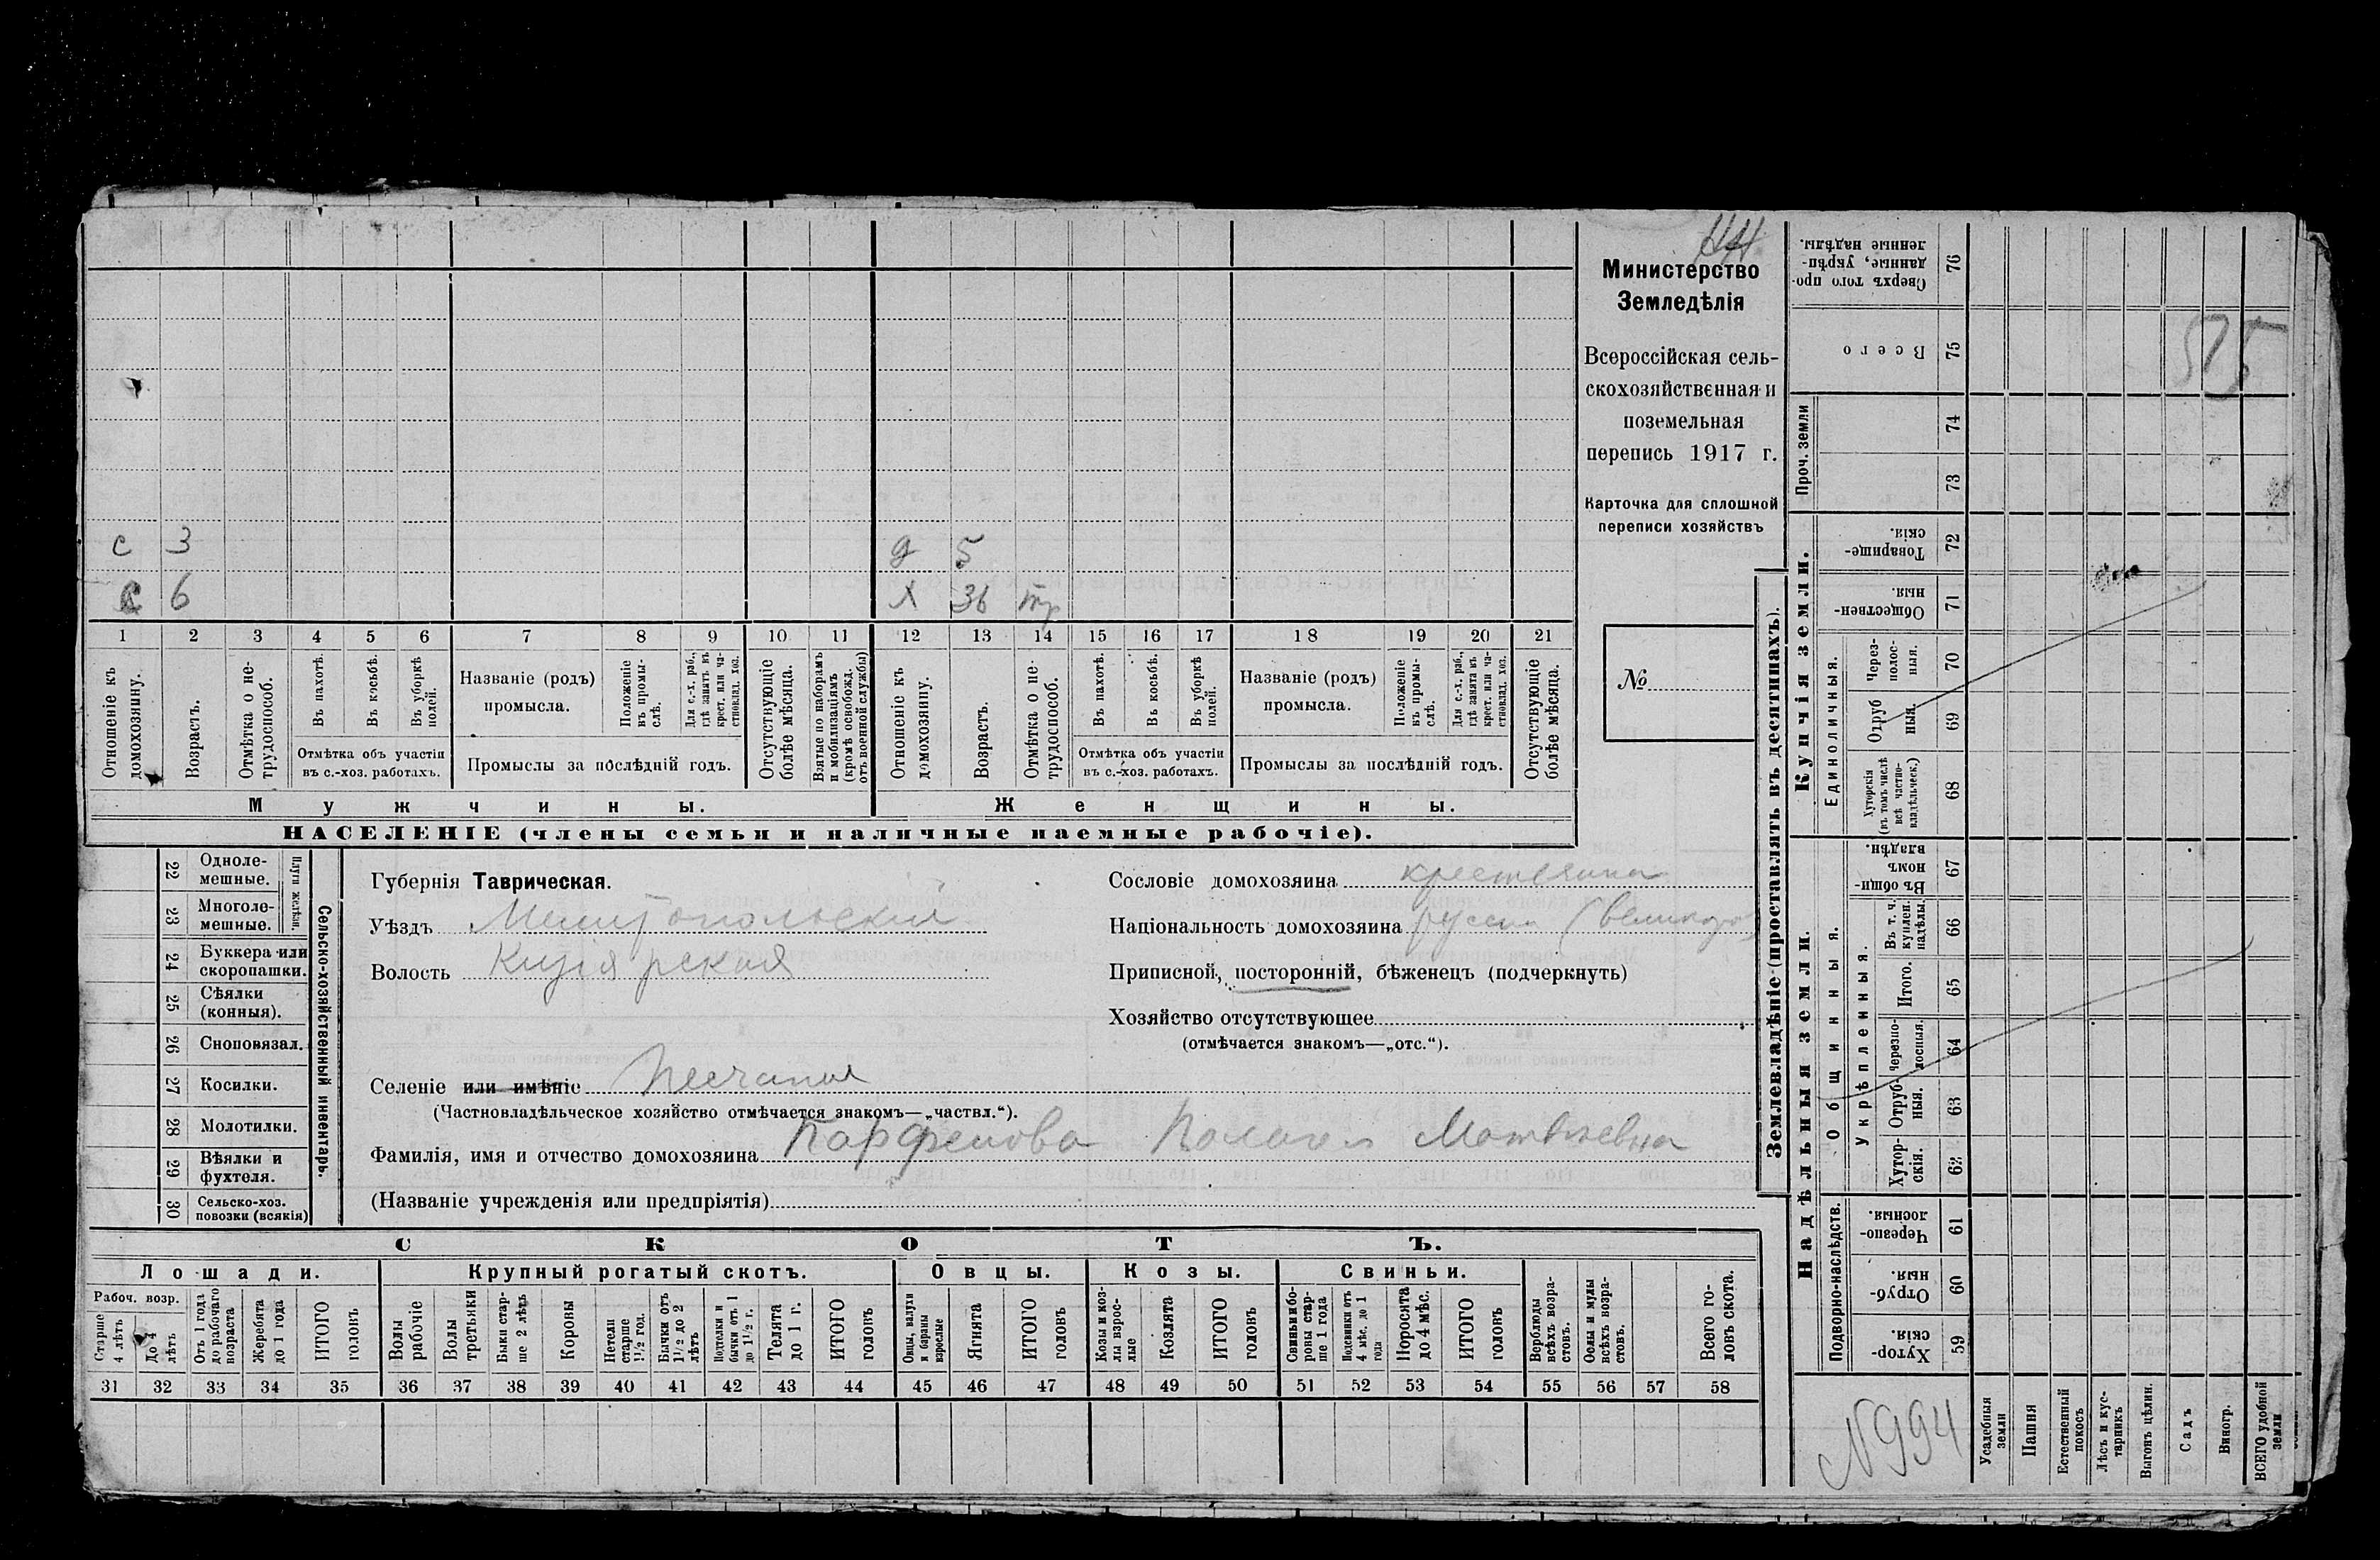 Министерство
Земледѣлія
Всероссійская сель-
скохозяйственная и
поземельная
перепись 1917 г.
Карточка для сплошной
переписи хозяйствъ
№
с 3
д 5
с 6
Х 36 тр
1 2 3 4 5 6 7 8 9 10 11 12 13 14 15 16 17 18 19 20 21
Отношеніе къ домохозяину.
Возрастъ.
Отмѣтка о не-трудоспособ.
Въ пахотѣ.
Въ косьбѣ.
Въ уборкѣ полей.
Отмѣтка объ участіи
въ с.-хоз. работахъ.
Названіе (родъ)
промысла.
Положеніе въ промы-слѣ.
Для с.-х. раб., гдѣ занятъ въ крест. или ча-стновлад. хоз.
Промыслы за послѣдній годъ.
Отсутствующіе болѣе мѣсяца.
Взятые по наборамъ и мобилизаціямъ (кромѣ освобожд. отъ военной службы)
Отношеніе къ домохозяину.
Возрастъ.
Отмѣтка о не-трудоспособ.
Въ пахотѣ.
Въ косьбѣ.
Въ уборкѣ полей.
Отмѣтка объ участіи
въ с.-хоз. работахъ.
Названіе (родъ)
промысла.
Положеніе въ промы-слѣ.
Для с.-х. раб., гдѣ занята въ крест. или ча-стновлад. хоз.
Промыслы за послѣдній годъ.
Отсутствующіе болѣе мѣсяца.
Мужчины.
Женщины.
НАСЕЛЕНІЕ (члены семьи и наличные наемные рабочіе).
22 Одноле-мешные.
23 Многоле-мешные.
Плуги желѣзн.
24 Буккера или скоропашки.
25 Сѣялки (конныя).
26 Сноповязал.
27 Косилки.
28 Молотилки.
29 Вѣялки и фухтеля.
30 Сельско-хоз. повозки (всякія)
Сельско-хозяйственный инвентарь.
Губернія Таврическая.
Уѣздъ Мелитопольский
Волость
Сословіе домохозяина крестьянка
Національность домохозяина русск (великор
Приписной, посторонній, бѣженецъ (подчеркнуть)
Хозяйство отсутствующее
(отмѣчается знакомъ—„отс.“).
Селеніе или имѣніе Песчаная
(Частновладѣльческое хозяйство отмѣчается знакомъ—„частвл.“).
Фамилія, имя и отчество домохозяина Парфенова Матвѣевна
(Названіе учрежденія или предпріятія)
СКОТЪ.
Лошади.
Крупный рогатый скотъ.
Овцы.
Козы.
Свиньи.
Рабоч. возр.
Старше 4 лѣтъ
До 4 лѣтъ
Отъ 1 года до рабочаго возраста
Жеребята до 1 года
ИТОГО головъ
Волы рабочіе
Волы третьяки
Быки стар-ше 2 лѣтъ
Коровы
Нетели старше 1½ год.
Бычки отъ 1½ до 2 лѣтъ
Подтелки и бычки отъ 1 до 1½ г.
Телята до 1 г.
ИТОГО головъ
Овцы, валухи и бараны взрослые
Ягнята
ИТОГО головъ
Козы и коз-лы взрос-лые
Козлята
ИТОГО головъ
Свиньи и бо-ровы стар-ше 1 года
Подсвинки отъ 4 мѣс. до 1 года
Поросята до 4 мѣс.
ИТОГО головъ
Верблюды всѣхъ возра-стовъ.
Ослы и мулы всѣхъ возра-стовъ.
Всего го-ловъ скота.
31 32 33 34 35 36 37 38 39 40 41 42 43 44 45 46 47 48 49 50 51 52 53 54 55 56 57 58
Землевладѣніе (проставлять въ десятинахъ).
Купчія земли.
Надѣльныя земли.
Сверхъ того про-данные, укрѣп-ленные надѣлы. 76
Всего 75
Проч. земли
74
73
Товарище-скія. 72
Обществен-ныя. 71
Единоличныя.
Через-полос-ныя. 70
Отруб ныя. 69
Хуторскія (въ томъ числѣ всѣ частно-владѣльческ.) 68
Общинныя.
Въ общи-номъ владѣн. 67
Укрѣпленныя.
Въ т. ч. куплен. надѣлы. 66
Итого. 65
черезпо-лосныя. 64
Отруб-ныя. 63
Хутор-скія. 62
Подворно-наслѣдств.
Черезпо-лосныя. 61
Отруб-ныя. 60
Хутор-скія. 59
Усадебныя земли
Пашня
Естественный покосъ
Лѣсъ и кус-тарникъ
Выгонъ цѣлин.
Садъ
Виногр.
ВСЕГО удобной земли
515
N994